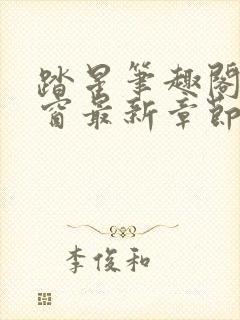 踏星笔趣阁
窗最新章節
李俊和